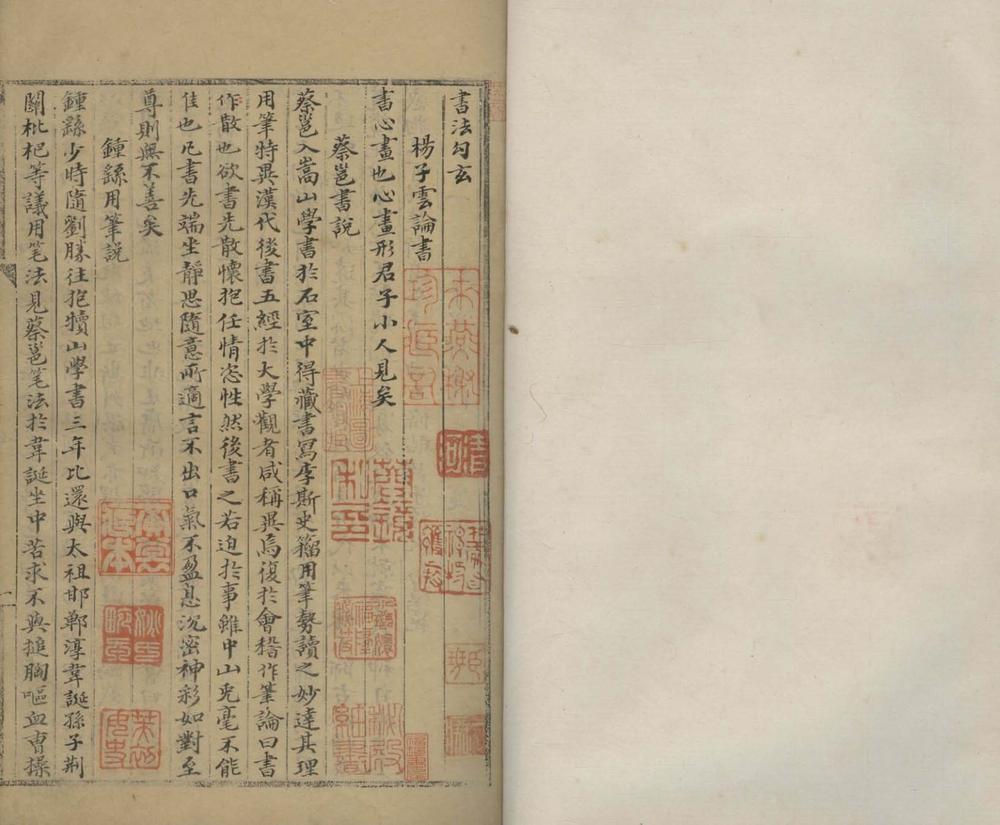 書法勾玄
楊子雲論書
書心畫也心畫形君子小人見矣
蔡邕書說
蔡邕入嵩山學書於石室中得藏書寫李斯史籀用筆勢讀之妙達其理
用筆特異漢代後書五經於大學觀者咸稱異焉復於會稽作筆論曰書
作散也欲書先散懷抱任情恣性然後書之若迫於事雖中山兎毫不能
佳也凡書先端坐靜思隨意所適言不出口氣不盈息沉密神彩如對至
尊則無不善矣
鍾繇用筆說
鍾繇少時隨劉勝往抱犢山學書三年比還與太祖邯鄲淳韋誕孫子荆
關枇杷等議用笔法見蔡邕笔法於韋誕坐中苦求不與搥胸嘔血曹操